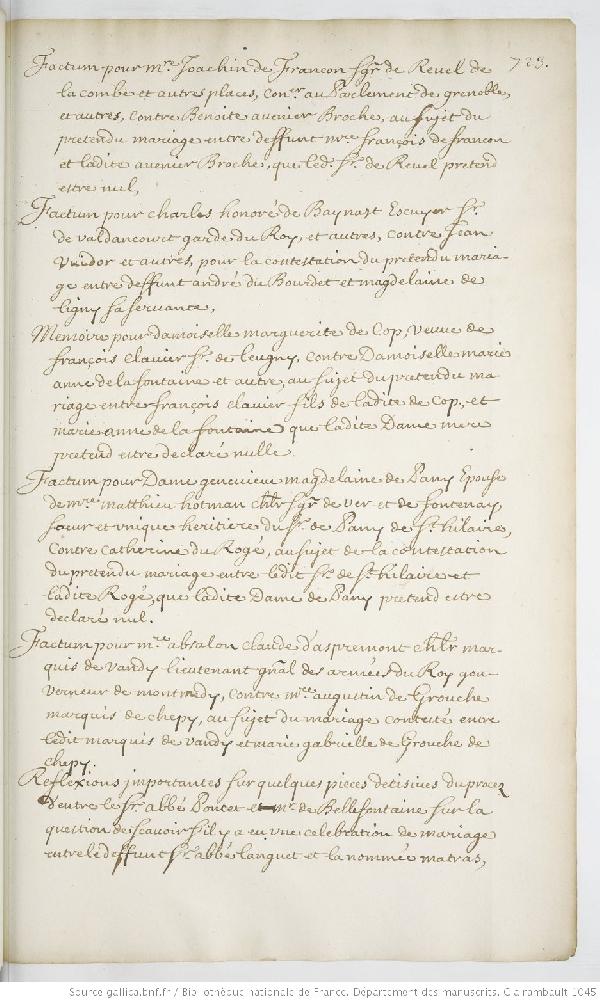 723.
Factum pour mre Joachin de Francon Sgr de Revel de
la combe et autres places, coner au Parlement de grenoble,
et autres, contre Benoite avenier Broche, au sujet du
pretendu mariage entre deffunt mre françois de francon
et ladite avenier Broche, que led. Sr. de Revel pretend
estre nul,
Factum pour charles honoré de Baynast Escuyer Sr.
de valdancourt garde du Roy, et autres, contre Jean
Vuidor et autres, pour la contestation du pretendu maria-
ge entre deffunt andré du Bourdet et magdelaine de
ligny sa servante,
Memoire pour damoiselle marguerite de Cop, veuve de
françois clavier Sr. de leugny, contre Damoiselle marie
anne de la fontaine et autre, au sujet du pretendu ma
riage entre françois clavier fils de ladite de Cop, et
marie anne de la fontaine que ladite Dame mere
pretend estre declaré nulle.
Factum pour Dame genevieve magdelaine de Pany Epouse
de mre matthieu hotman chlr Sgr de ver et de fontenay,
soeur et vnique heritiere du Sr. de Pany de St. hilaire,
Contre Catherine du Rogé, au sujet de la contestation
du pretendu mariage entre ledit Sr. de St hilaire et
ladite Rogé, que ladite Dame de Pany pretend estre
declaré nul.
Factum pour mre absalon claude d'aspremont chlr mar-
quis de vandy lieutenant gnal des armées du Roy gou-
verneur de montmedy, contre mre augustin de Grouche
marquis de chepy, au sujet du mariage contesté entre
ledit marquis de vandy et marie gabrielle de Grouche de
chepy.
Reflexions jmportantes sur quelques pieces decisives du procez
d'entre le Sr. abbé Poncet et mr. de Bellefontaine sur la
question de scavoir s'il y a eu vne celebration de mariage
entre le deffunt Sr. abbé languet et la nommée matras,
Source gallica.bnf.fr / Bibliothèque nationale de France. Département des manuscrits. Clairambault 1045